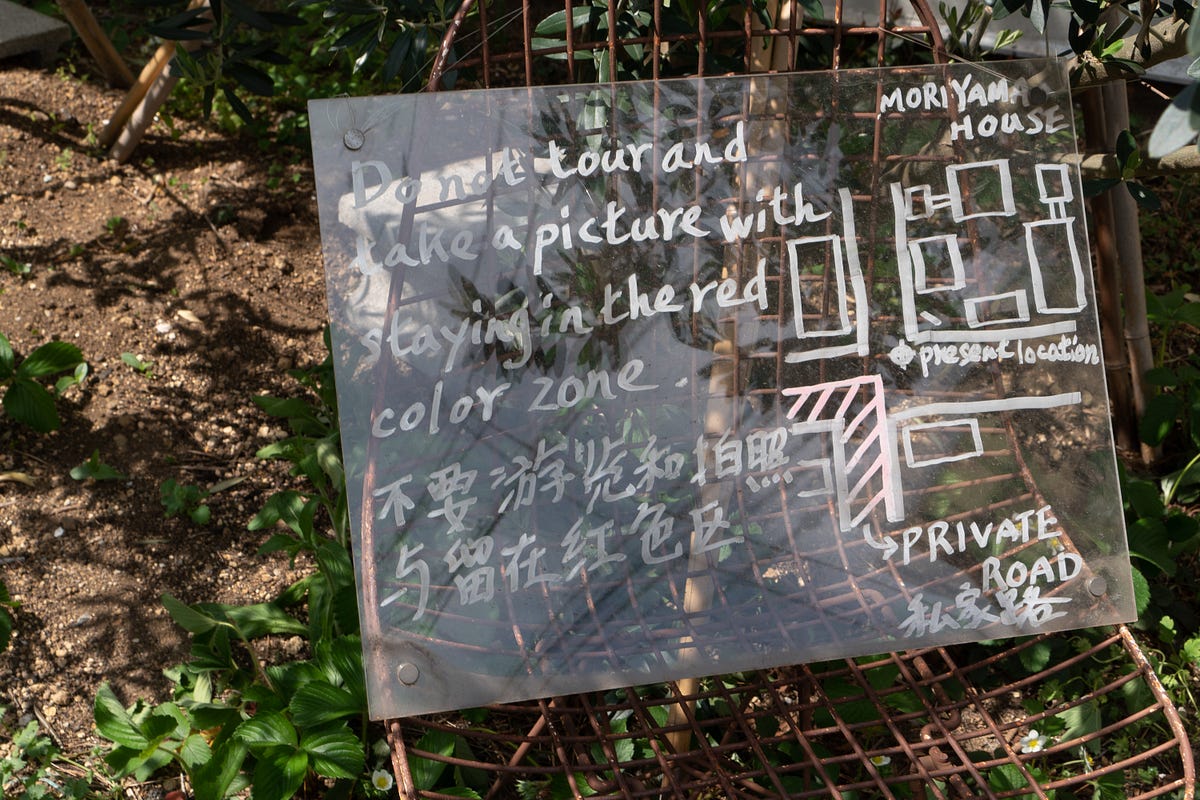 Do not tour and
take a picture with
staying in the red
color zone.
不要游览和拍照
与留在红色区
MORIYAMA
HOUSE
present location
PRIVATE
ROAD
私家路